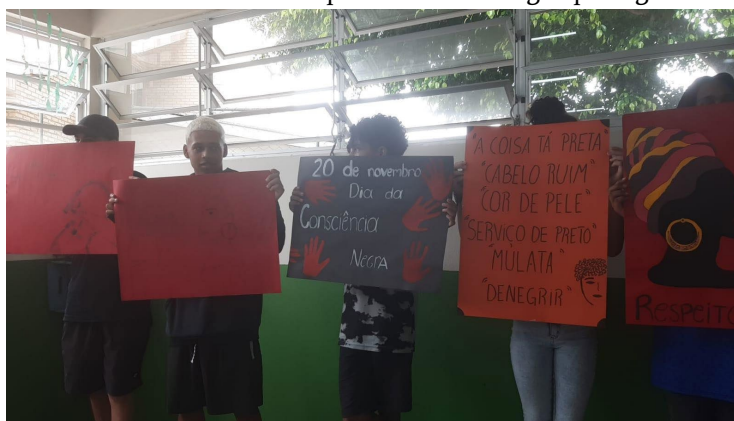 20 de novembro
Dia da
Consciência
Negra
"A COISA TÁ PRETA"
"CABELO RUIM"
"COR DE PELE"
"SERVIÇO DE PRETO"
"MULATA"
"DENEGRIR"
RESPEITO